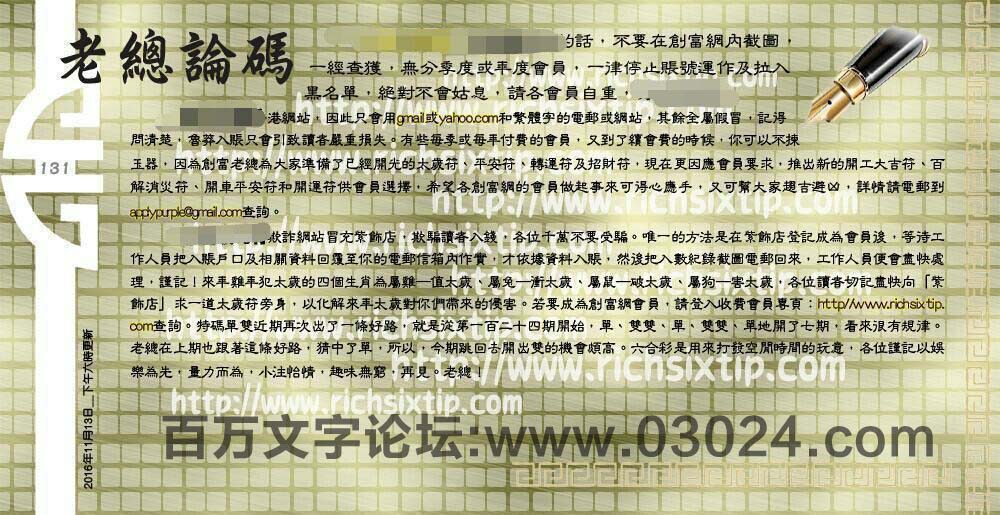 老總論碼
的話，不要在創富網內截圖，
一經查獲，無分季度或年度會員，一律停止賬號運作及拉入
黑名單，絕對不會姑息，請各會員自重，
港網站，因此只會用gmail或yahoo.com和繁體字的電郵或網站，其餘全屬假冒，記得
問清楚，魯莽入賬只會引致讀者嚴重損失。有些每季或每年付費的會員，又到了續會費的時候，你可以不揀
131
玉器，因為創富老總為大家準備了已經開光的太歲符、平安符、轉運符及招財符，現在更因應會員要求，推出新的開工大吉符、百
解消災符、開車平安符和開運符供會員選擇，希望各創富網的會員做起事來可得心應手，又可幫大家趨吉避凶，詳情請電郵到
applypurple@gmail.com查詢。
欺詐網站冒充紫飾店，欺騙讀者入錢，各位千萬不要受騙。唯一的方法是在紫飾店登記成為會員後，等待工
作人員把入賬戶口及相關資料回覆至你的電郵信箱內作實，才依據資料入賬，然後把入數紀錄截圖電郵回來，工作人員便會盡快處
理，謹記！來年雞年犯太歲的四個生肖為屬雞一值太歲、屬兔一衝太歲、屬鼠一破太歲、屬狗一害太歲，各位讀者切記盡快向「紫
飾店」求一道太歲符旁身，以化解來年太歲對你們帶來的侵害。若要成為創富網會員，請登入收費會員專頁：http//www.richsixtip.
com查詢。特碼單雙近期再次出了一條好路，就是從第一百二十四期開始，單、雙雙、單、雙雙、單地開了七期，看來很有規律。
老總在上期也跟著這條好路，猜中了單，所以，今期跳回去開出雙的機會頗高。六合彩是用來打發空閒時間的玩意，各位謹記以娛
樂為先，量力而為，小注怡情，趣味無窮，再見。老總！
2016年11月13日__下午六時更新
http://www.richsixtip.com
http://www.richsixtip.com
http://www.richsixtip.com
http://www.richsixtip.com
百万文字论坛:www.03024.com